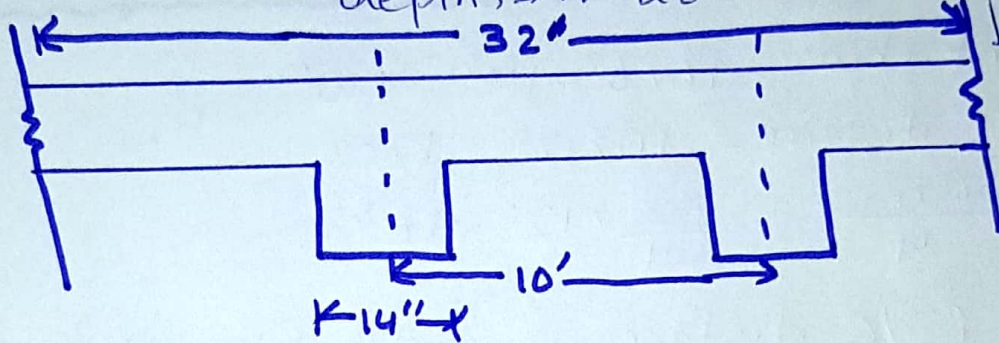 32'
10'
14"